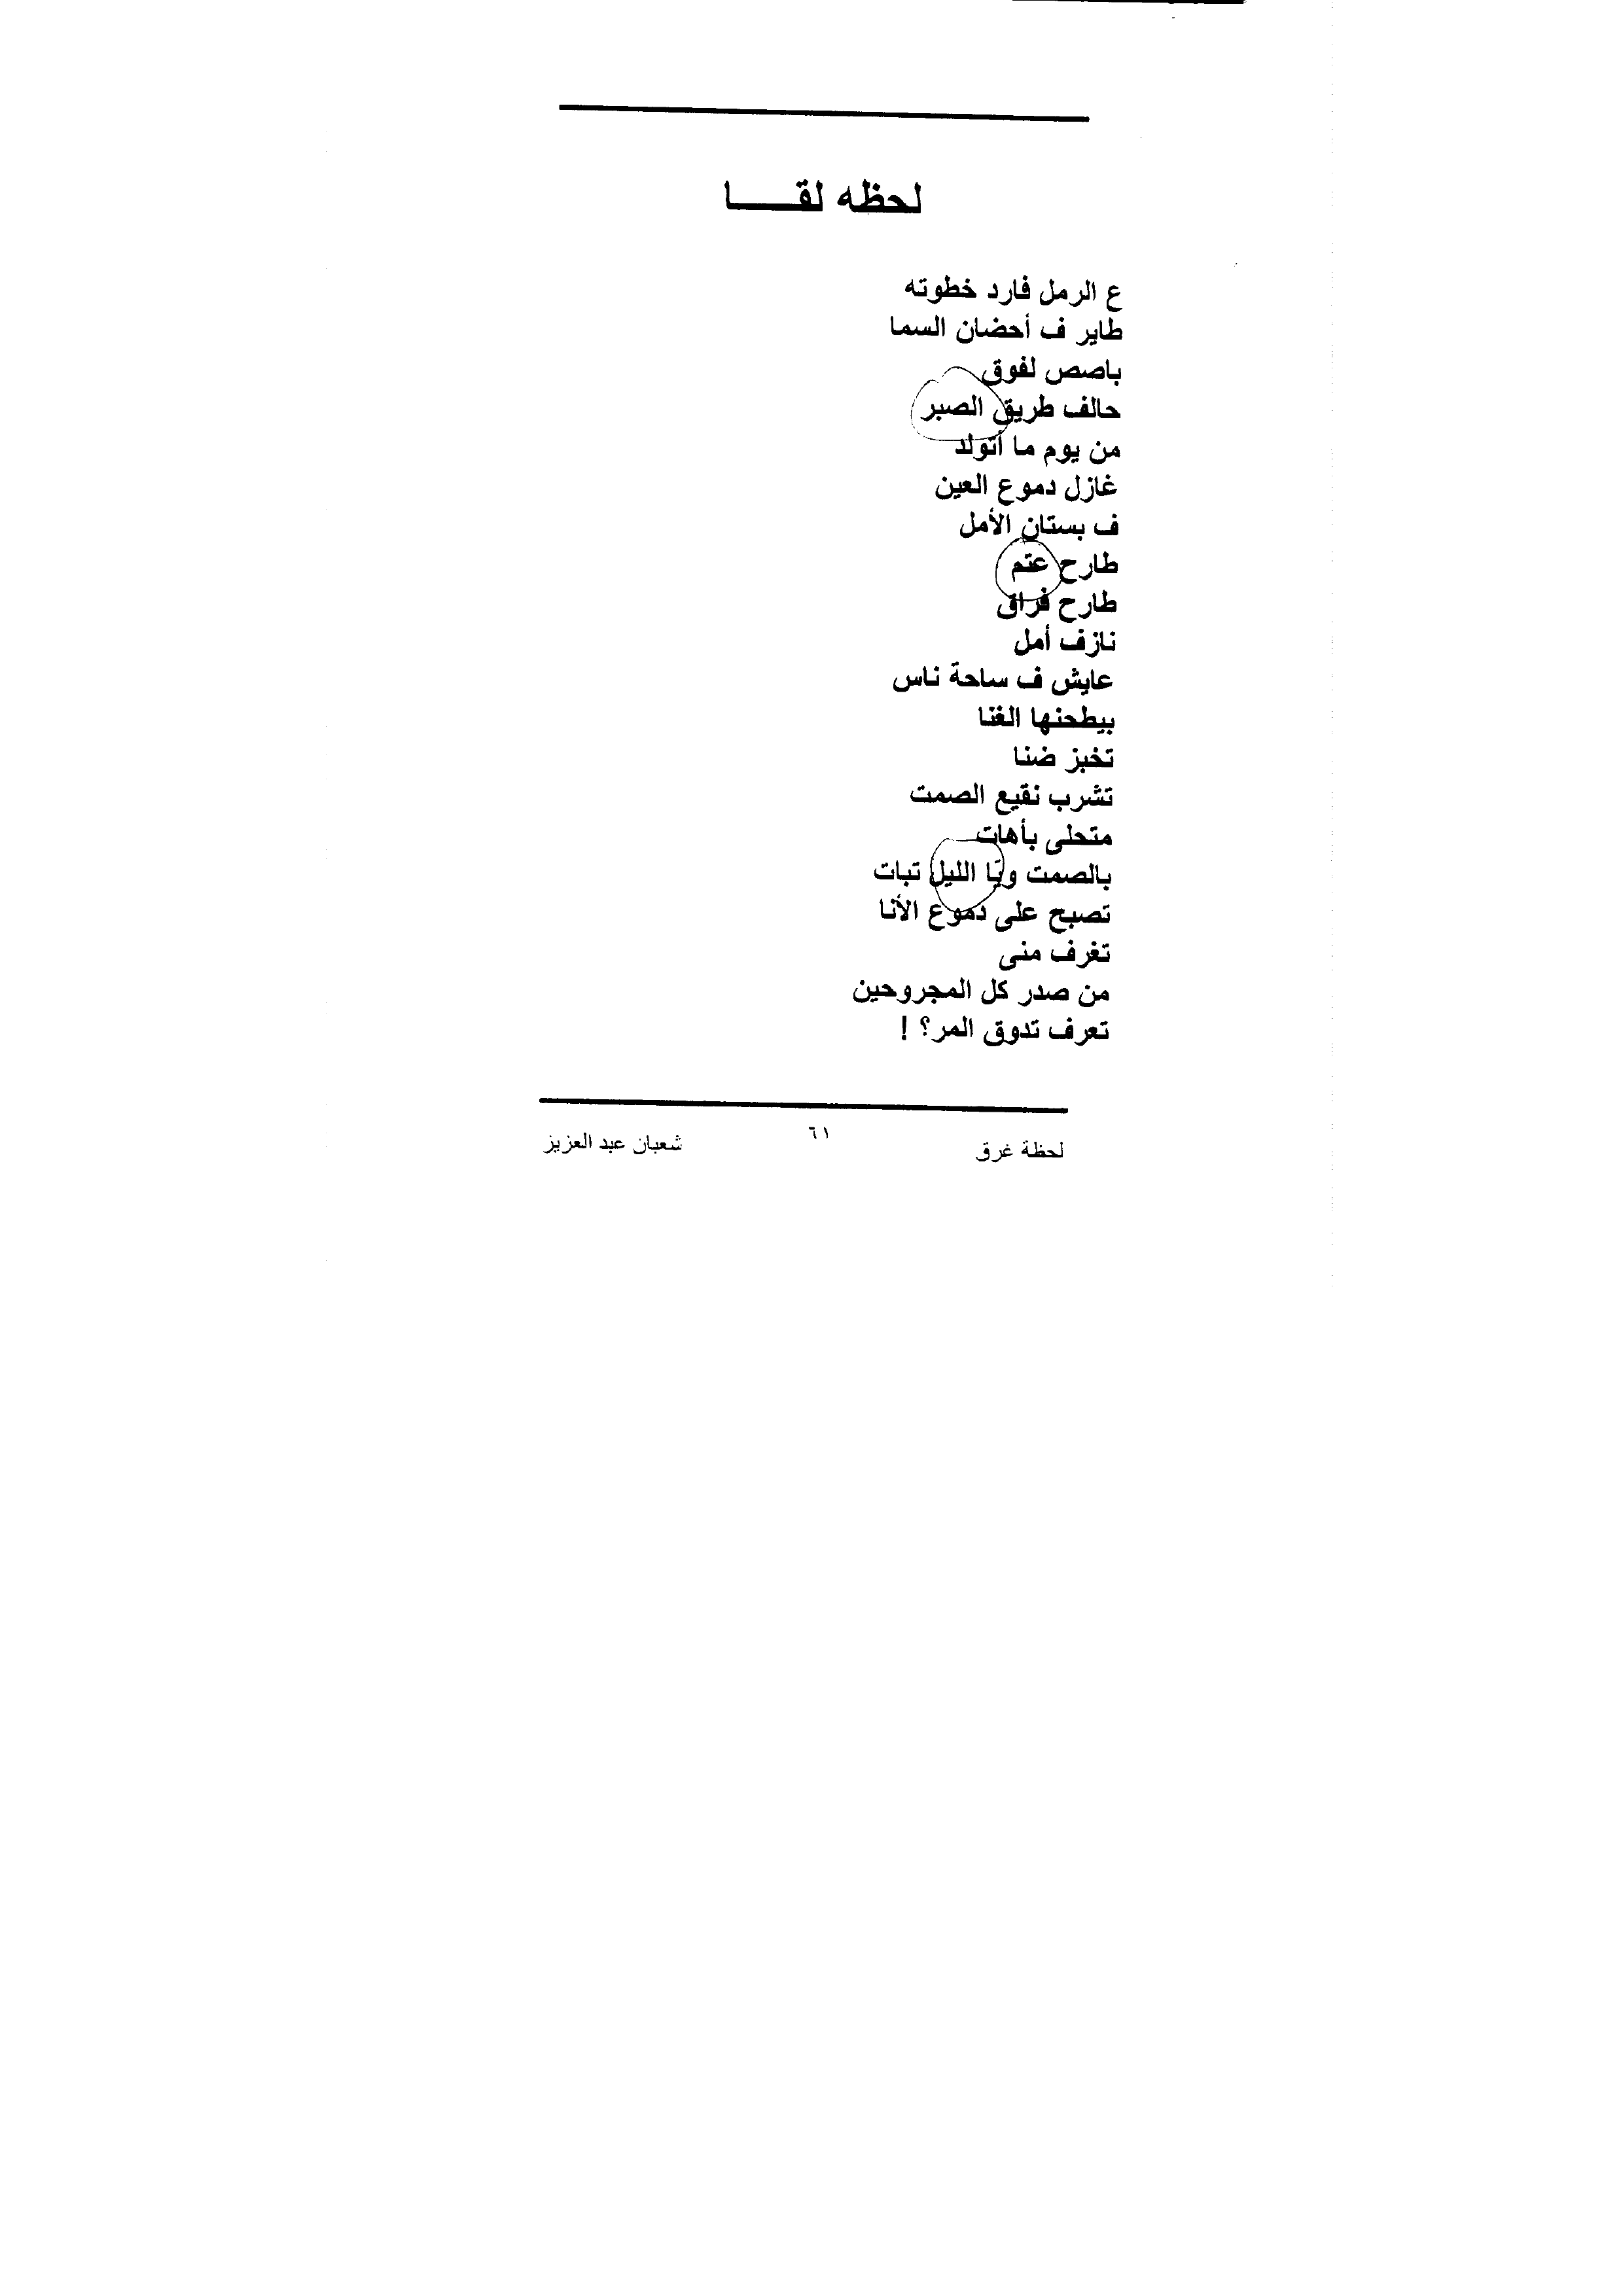 لحظه لقـــــا
ع الرمل فارد خطوته
طاير ف أحضان السما
باصص لفوق
حالف طريق الصبر
من يوم ما أتولد
غازل دموع العين
ف بستان الأمل
طارح عتم
طارح فراق
نازف أمل
عايش ف ساحة ناس
بيطحنها الغنا
تخبز ضنا
تشرب نقيع الصمت
متحلى بأهات
بالصمت ويَا الليل تبات
تصبح على دموع الأنا
تغرف منى
من صدر كل المجروحين
تعرف تدوق المر؟ !
لحظة غرق ٦١ شعبان عبد العزيز